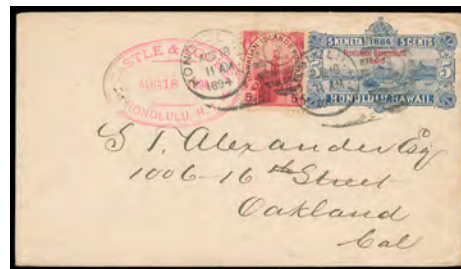 CASTLE & CO
AUG 18
HONOLULU, H.
HONOLULU
AUG 18
11 AM
1894
HAWAIIAN ISLANDS
5
5 KENETA 1884 5 CENTS
5 5
HONOLULU HAWAII
S. T. Alexander Esq
1006-16th Street
Oakland
Cal